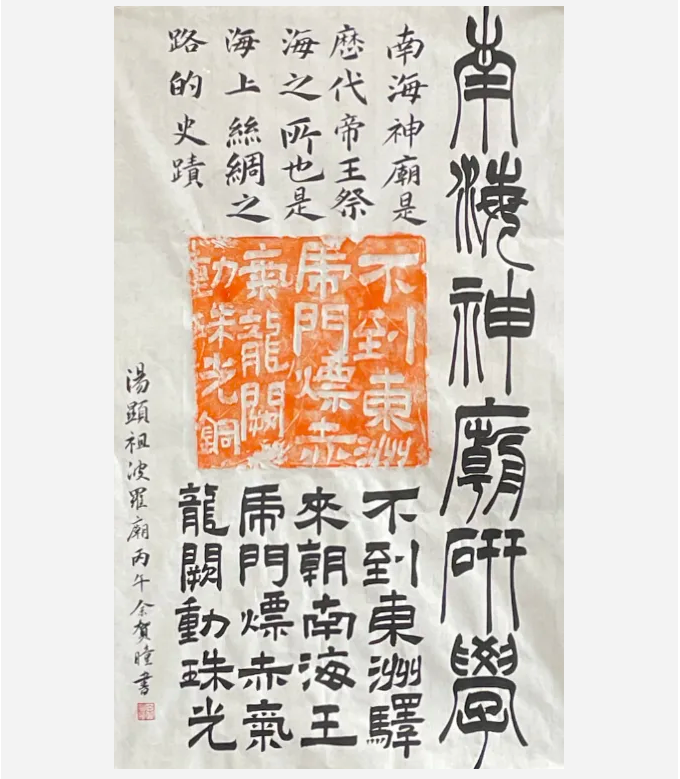 南海神廟研學
南海神廟是
歷代帝王祭
海之所也是
海上絲綢之
路的史蹟
不到東洲
虎門熛赤
氣龍闕
動珠光銅
不到東洲驛
來朝南海王
虎門熛赤氣
龍闕動珠光
湯顯祖波羅廟丙午余賀瞳書